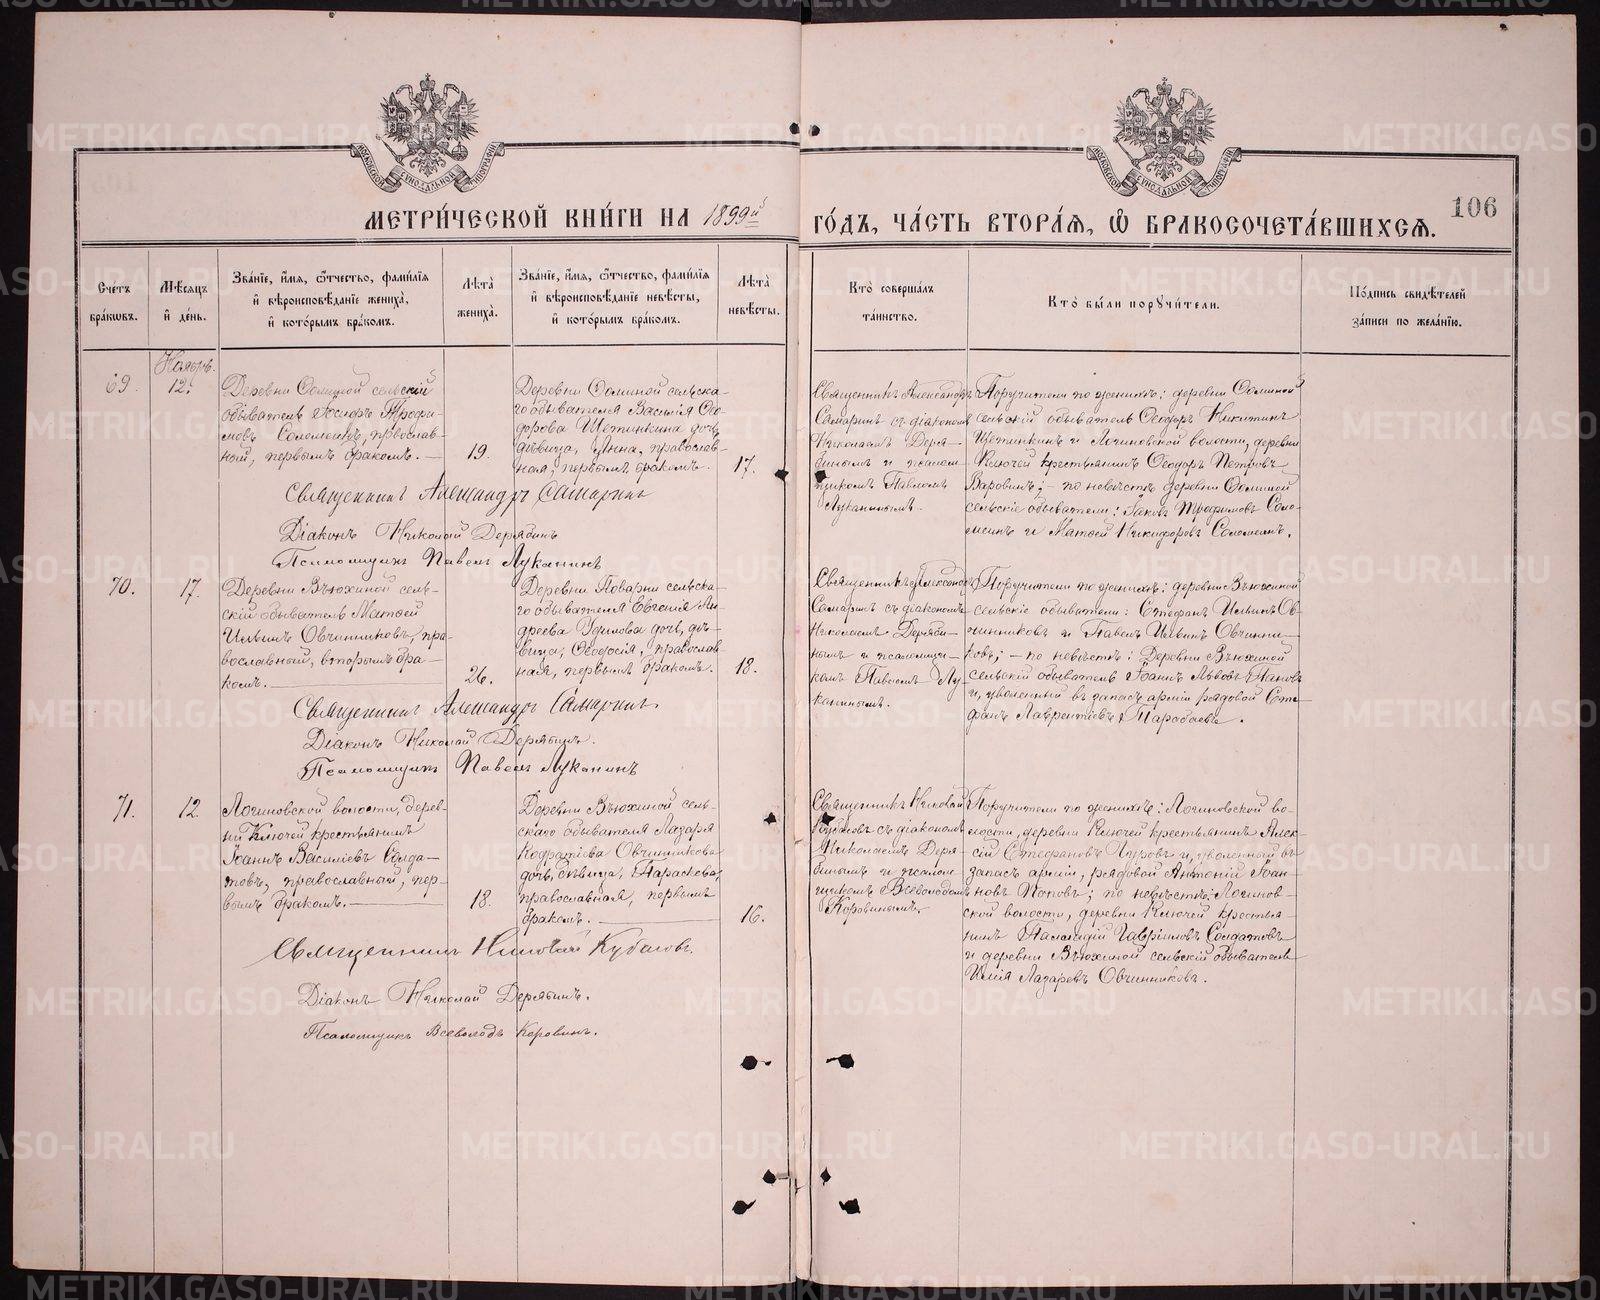 МЕТРИ́ЧЕСКОЙ КНИ́ГИ НА 1899й ГО́ДЪ, ЧА́СТЬ ВТОРА́Я, Ѡ БРАКОСОЧЕТА́ВШИХСЯ.
106
МОСКОВСКОЙ СУНОДАЛЬНОЙ ТИПОГРАФІИ
МОСКОВСКОЙ СУНОДАЛЬНОЙ ТИПОГРАФІИ
Сче́тъ
бра́кѡвъ.
Мѣ́сяцъ
и҆ де́нь.
Зва́нїе, и҆́мя, ѻ҆́тчество, фами́лїя
и҆ вѣроисповѣ́данїе жениха̀,
и҆ кото́рымъ бра́комъ.
Лѣ́та
жениха̀.
Зва́нїе, и҆́мя, ѻ҆́тчество, фами́лїя
и҆ вѣроисповѣ́данїе невѣ́сты,
и҆ кото́рымъ бра́комъ.
Лѣ́та
невѣ́сты.
Кто̀ соверша́лъ
та́инство.
Кто̀ бы́ли порꙋчи́тели.
По́дпись свидѣ́телей
за́писи по жела́нїю.
Ноябрь.
69.
12.
Деревни Соминой сельскій
обыватель Іосифъ Трофи-
мовъ Соломеинъ, православ-
ный, первымъ бракомъ. —
19.
Деревни Соминой сельска-
го обывателя Василія Ѳео-
дорова Щетинкина дочь,
дѣвица, Анна, православ-
ная, первымъ бракомъ.
17.
Священникъ Александръ
Самаринъ съ діакономъ
Николаемъ Деря-
бинымъ и псалом-
щикомъ Павломъ
Луканинымъ.
Поручители по женихѣ: деревни Соминой
сельскій обыватель Ѳеодоръ Никитинъ
Щетинкинъ и Логиновской волости, деревни
Ключей крестьянинъ Ѳеодоръ Петровъ
Варовинъ; — по невѣстѣ деревни Соминой
сельскіе обыватели: Іаковъ Трофимовъ Соло-
меинъ и Матѳей Никифоровъ Соломеинъ.
Священникъ Александръ Самаринъ
Діаконъ Николай Дерябинъ
Псаломщикъ Павелъ Луканинъ
70.
17.
Деревни Вьюхиной сель-
скій обыватель Матѳей
Ильинъ Овчинниковъ, пра-
вославный, вторымъ бра-
комъ.
26.
Деревни Поварни сельска-
го обывателя Евгенія Ан-
дреева Удилова дочь, дѣ-
вица, Ѳеодосія, православ-
ная, первымъ бракомъ.
18.
Священникъ Александръ
Самаринъ съ діакономъ
Николаемъ Деряби-
нымъ и псаломщи-
комъ Павломъ Лу-
канинымъ.
Поручители по женихѣ: деревни Вьюхиной
сельскіе обыватели: Стефанъ Ильинъ Ов-
чинниковъ и Павелъ Ильинъ Овчинни-
ковъ; — по невѣстѣ: Деревни Вьюхиной
сельскій обыватель Іоаннъ Львовъ Пановъ
и, уволенный въ запасъ арміи рядовой Сте-
фанъ Лаврентіевъ
Священникъ Александръ Самаринъ
Діаконъ Николай Дерябинъ.
Псаломщикъ Павелъ Луканинъ
71.
12.
Логиновской волости, дерев-
ни Ключей крестьянинъ
Іоаннъ Василіевъ Солда-
товъ, православный, пер-
вымъ бракомъ.
18.
Деревни Вьюхиной сель-
скаго обывателя Лазаря
Кодратіева Овчинникова
дочь, дѣвица, Параскева,
православная, первымъ
бракомъ.
16.
Священникъ Николай
съ діакономъ
Николаемъ Деря-
бинымъ и псалом-
щикомъ Всеволодомъ
Коровинымъ.
Поручители по женихѣ: Логиновской во-
лости, деревни Ключей крестьянинъ Алек-
сій Стефановъ Чуровъ и, уволенный въ
запасъ арміи, рядовой Антоній Іоан-
новъ Поповъ; по невѣстѣ: Логинов-
ской волости, деревни Ключей крестья-
нинъ Палладій Гавріиловъ Солдатовъ
и деревни Вьюхиной сельскій обыватель
Илія Лазаревъ Овчинниковъ.
Священникъ Николай
Діаконъ Николай Дерябинъ.
Псаломщикъ Всеволодъ Коровинъ.
METRIKI.GASO-URAL.RU